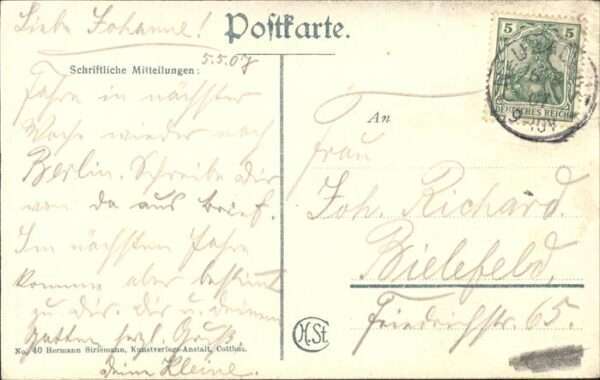 Liebe Johanne!
Postkarte.
5.5.07
Schriftliche Mitteilungen:
Fahre in nächster
Woche wieder nach
Berlin. Schreibe Dir
von da aus Brief.
Im nächsten Jahre
komme aber bestimmt
zu Dir. Dir u. deinem
Gatten herzl. Gruß
deine Kleine.
No. 40 Hermann Striemann, Kunstverlags-Anstalt, Cottbus.
H.St.
5 5
DEUTSCHES REICH
An
Frau
Joh. Richard.
Bielefeld,
Friedrichstr. 65.